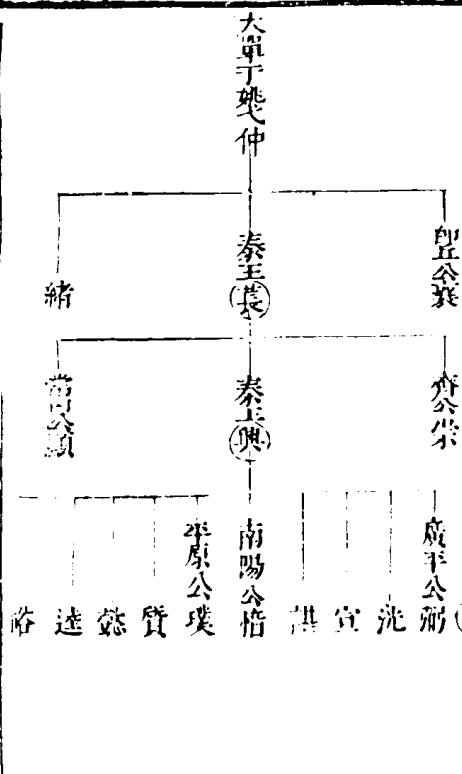 大單于姚弋仲
公襄
秦王萇
緒
齊公崇
秦王興
常山公顯
廣平公弼
洸
宣
諶
南陽公愔
平原公璞
質
懿
逵
裕